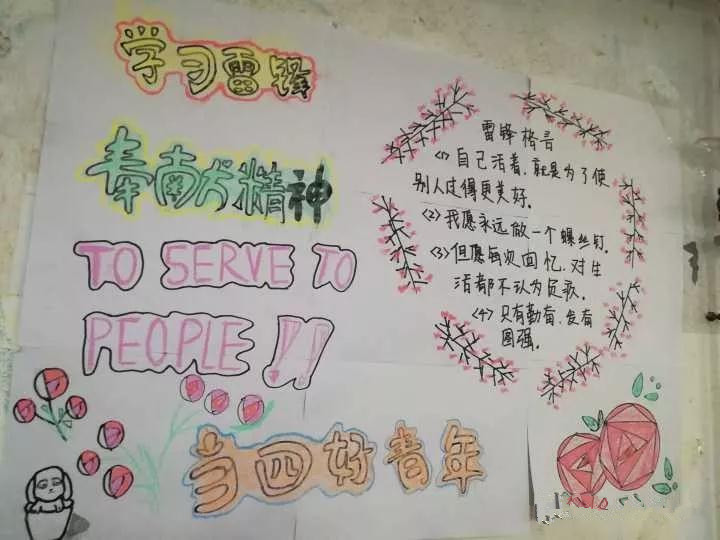 学习雷锋
奉献精神
TO SERVE TO
PEOPLE!!
当四好青年
雷锋格言
<1>自己活着，就是为了使
别人过得更美好。
<2>我愿永远做一个螺丝钉。
<3>但愿每次回忆，对生
活都不认为负歉。
<4>只有勤奋，发奋
图强。